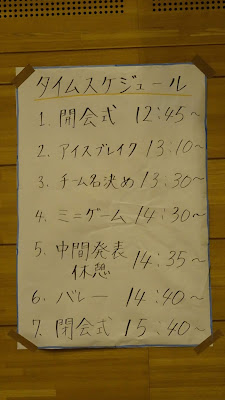 タイムスケジュール
1. 開会式 12:45~
2. アイスブレイク 13:10~
3. チーム名決め 13:30~
4. ミニゲーム 14:30~
5. 中間発表 14:35~
休憩
6. バレー 14:40~
7. 閉会式 15:40~